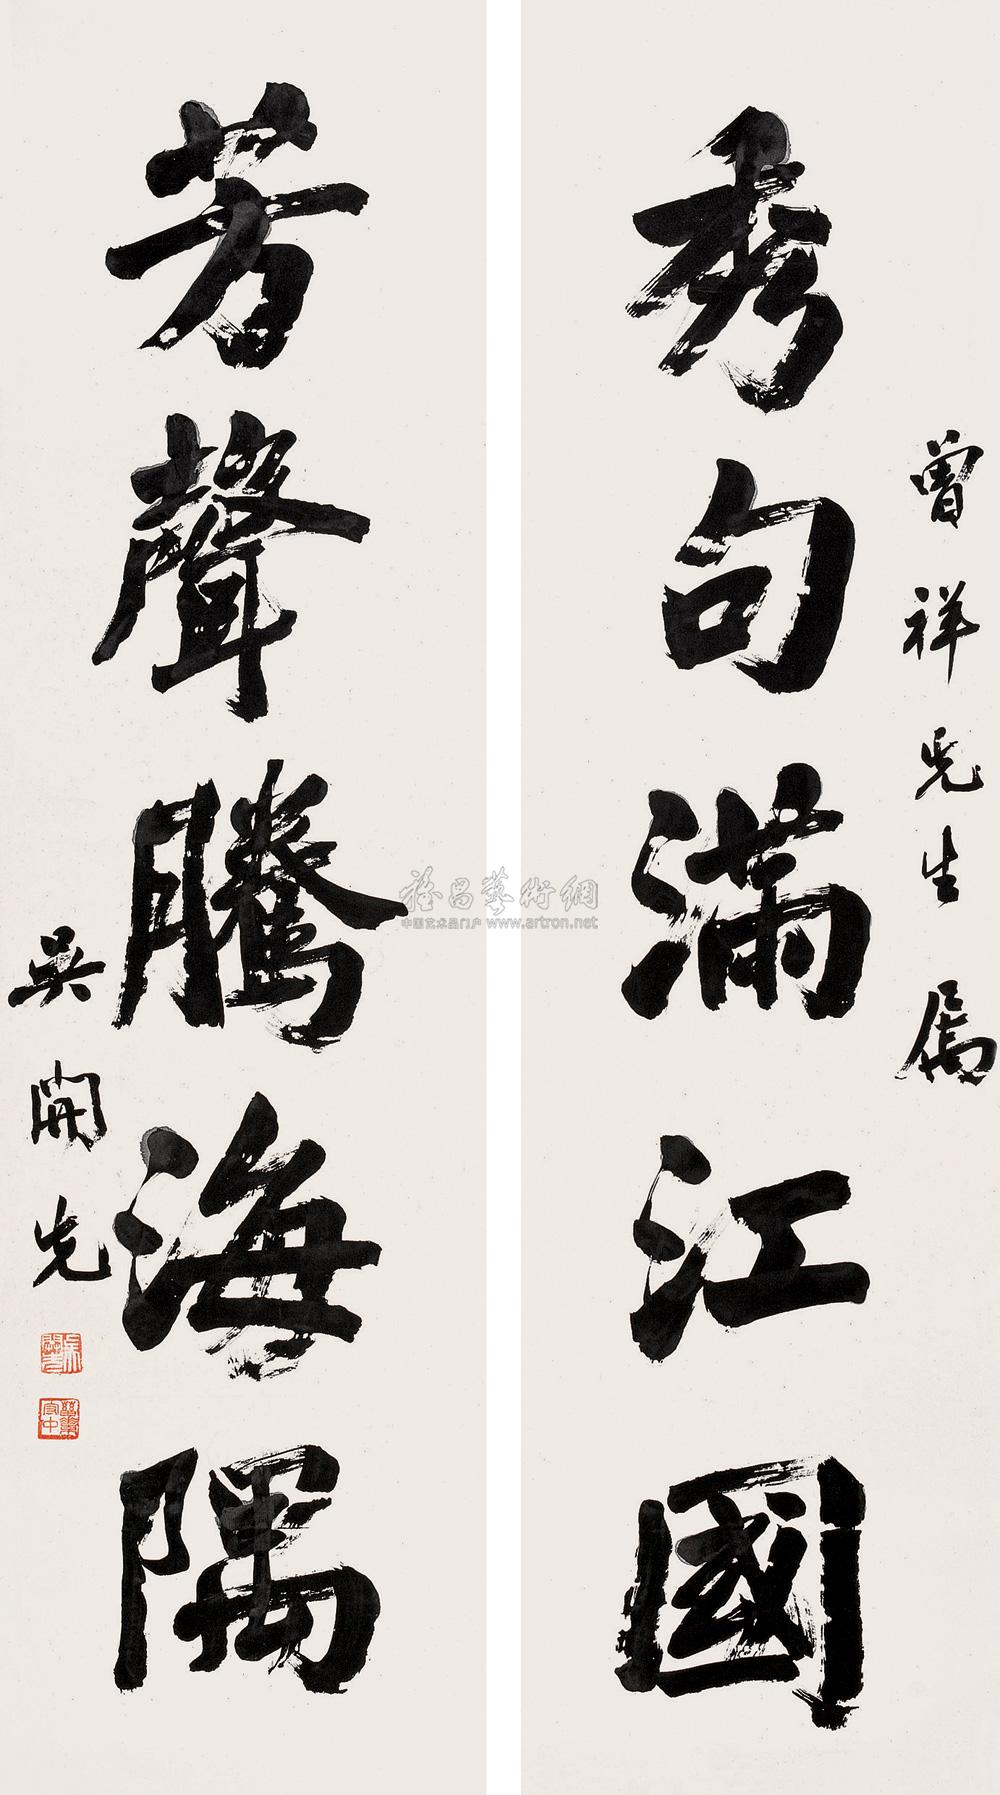 曾祥先生属
秀句滿江國
芳聲騰海隅
吳開先
雅昌藝術網
中国艺术品门户 www.artron.net